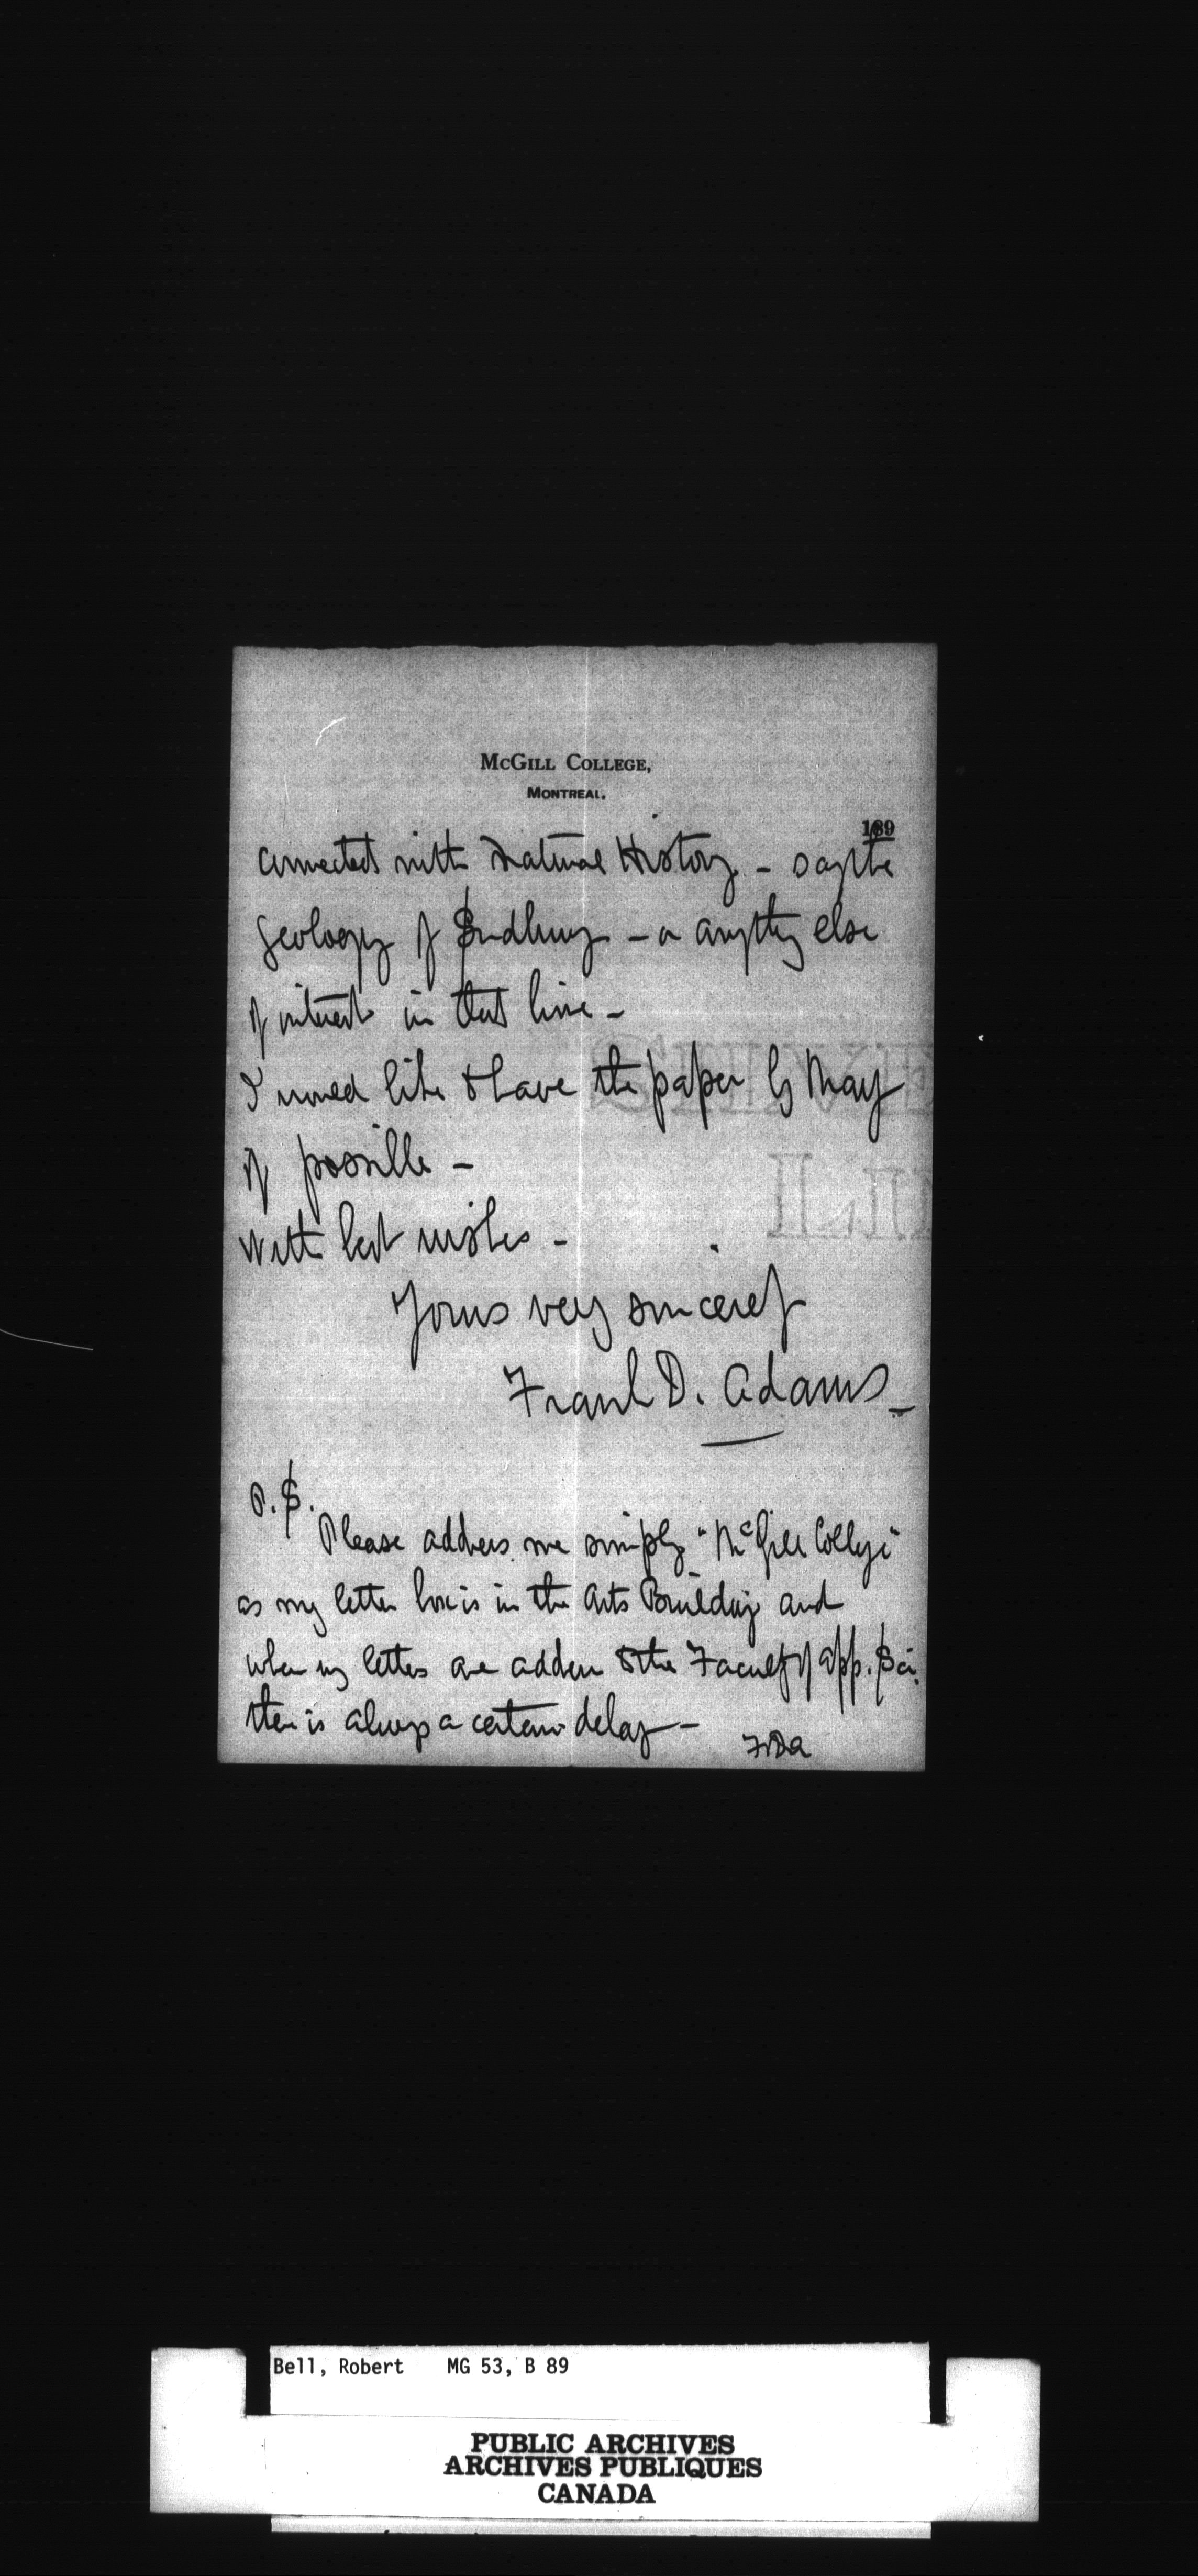 McGill College,
Montreal.
189
connected with Natural History - say the
geology of Sudbury - or anything else
of interest in that line -
I would like to have the paper by May
if possible -
With best wishes -
Yours very sincerely
Frank D. Adams -
P.S.
Please address me simply "McGill College"
as my letter box is in the Arts Building and
when my letters are address to the Faculty of App. Sci.
there is always a certain delay -
FDA
Bell, Robert MG 53, B 89
PUBLIC ARCHIVES
ARCHIVES PUBLIQUES
CANADA